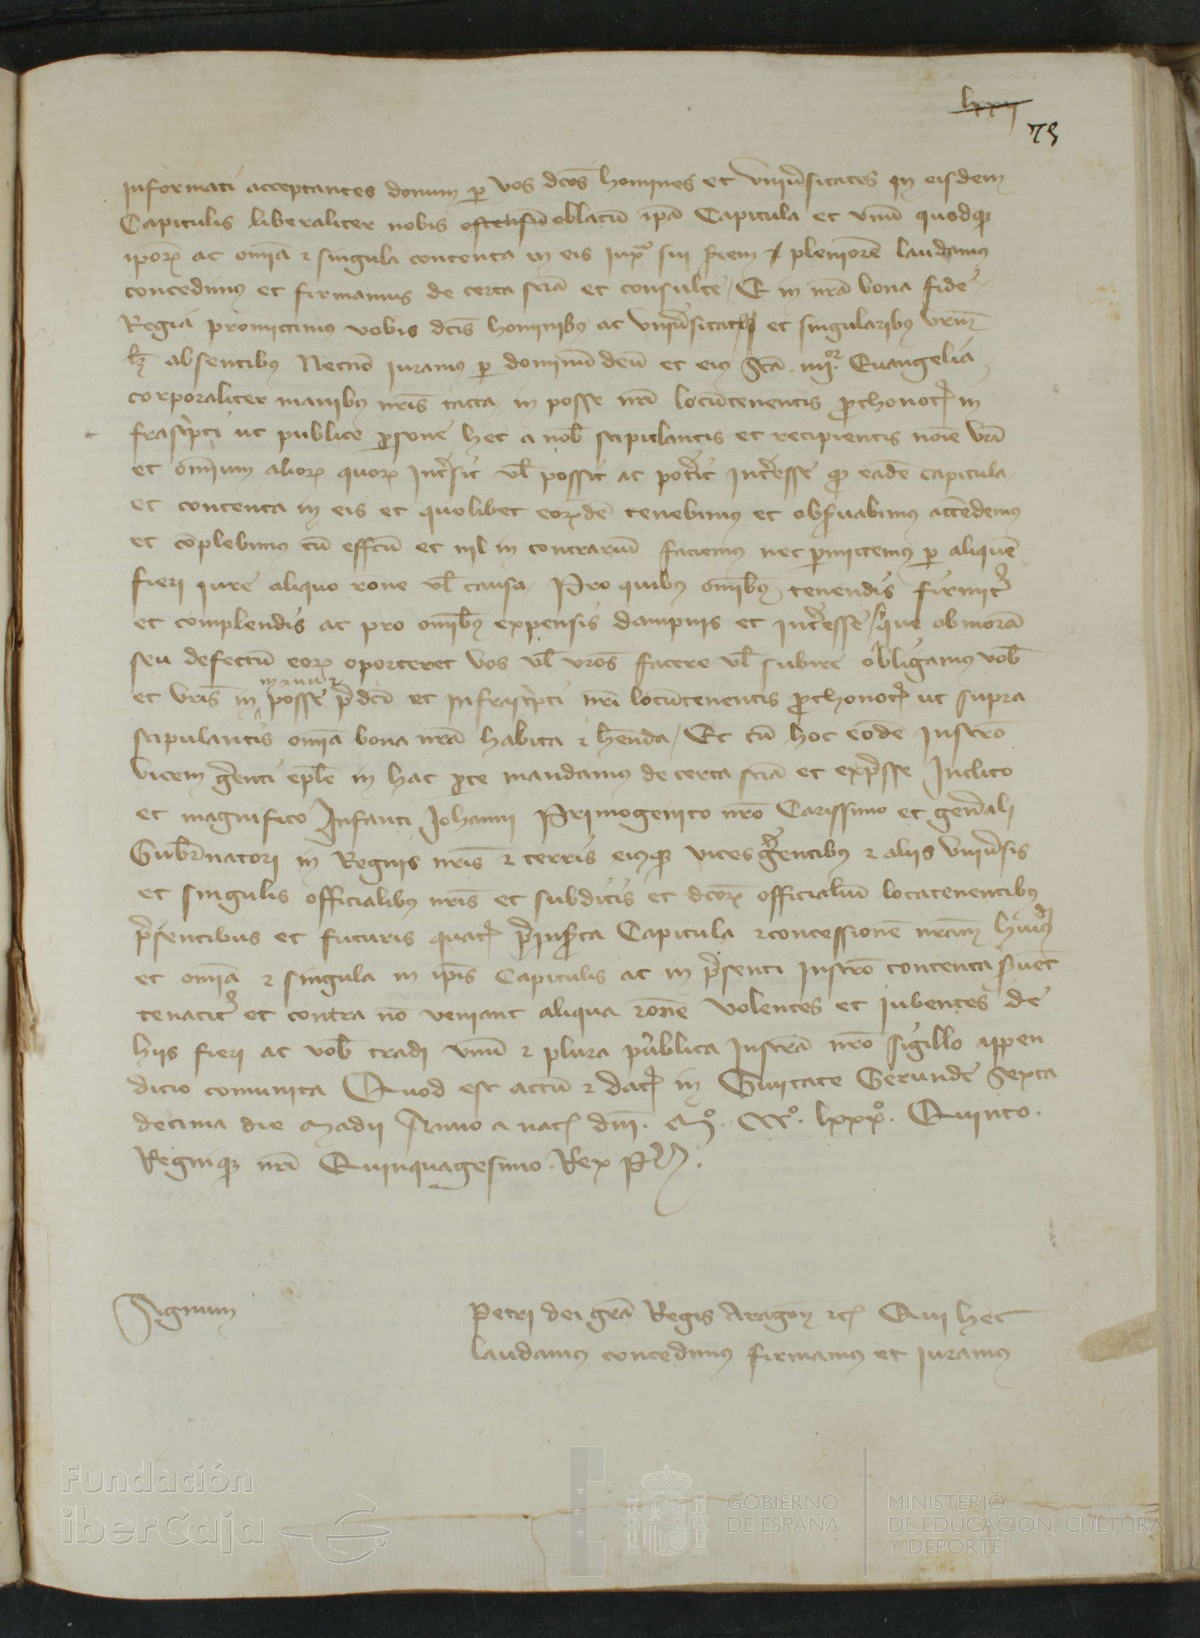 lxxij
75
informati acceptantes donum p vos dcos homines et vniũsitates in eisdem
Capitulis liberaliter nobis oblatũ ipã Capitula et vnũ quodqȝ
ipoꝝ ac omĩa ⁊ singula contenta in eis iuxª sui pleniorẽ laudamus
concedimus et firmamus de certa sciã et consulte / Et in nrã bona fide
Regia promittimus vobis dcis hominibus ac vniũsitatibȝ et singularibus vrm̃
lȝ absentibus Necnõ iuramus p dominũ deũ et eius scã . iiijor. Euangelia
corporaliter manibus nris tacta in posse nri locũtenentis ꝓthonotr̃ in
frascripti ut publice ꝑsone hec a nob̃ stipulantis et recipientis noĩe vrĩ
et omnium alioꝝ quoꝝ intr̃sit vl̃ possit ac potr̃it intr̃esse qȝ eadẽ capitula
et contenta in eis et quolibet eoꝝdẽ tenebimus et obsr̃uabimus attẽdemus
et cõplebimus cũ effcũ et nil in contrariũ faciemus nec ꝑmittemus p aliquẽ
fieri iure aliquo rone vl̃ causa. Pro quibus omĩbus tenendis firmitr̃
et complendis ac pro omĩbus expensis dampnis et intr̃esse / que ob morã
seu defectũ eoꝝ oporteret vos vl̃ vros facere vl̃ subire obligamus vob̃
manu ⁊
et vris in posse p̃dcĩ et infrascripti nrĩ locũtenentis ꝓthonotr̃ ut supra
stipulantis omĩa bona nrã habita ⁊ hẽnda / Et cũ hoc eodẽ instrõ
vicem gr̃enti in hac ꝑte mandamus de certa sciã et exp̃sse Inclito
et magnifico Infanti Johanni Primogenito nrõ Carissimo et gen̾ali
Gub̾natori in Regnis nris ⁊ terris eiusqȝ vices gr̃entibus ⁊ aliis vniũsis
et singulis officialibus nris et subditis et dcoꝝ officialiũ locatenentibus
p̃sentibus et futuris quatr̃ p̃inserta Capitula ⁊ concessionẽ nrãm huiõi
et omĩa ⁊ singula in ipis Capitulis ac in p̃senti instrõ contenta sr̃uet
tenacitr̃ et contra nõ veniant aliqua rone Volentes et iubentes de
hiis fieri ac vob̃ tradi vnũ ⁊ plura publica instrã nrõ sigillo appen
dicio comunita Quod est actũ ⁊ datr̃ in Ciuitate Gerunde Sexta
decima die Madii Anno a natr̃ dni . Mº. CCCº. lxxxº. Quinto.
Regnigȝ nrĩ Quinquagesimo. Rex P̃.
Signum
Petri dei grã Regis Aragon ⁊c̃ Qui hec
laudamus concedimus firmamus et iuramus
Fundación
iberCaja
GOBIERNO
DE ESPAÑA
MINISTERIO
DE EDUCACIÓN, CULTURA
Y DEPORTE